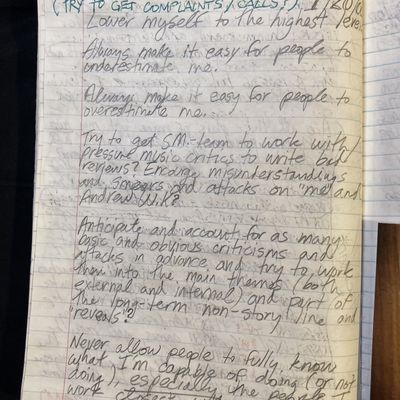 (TRY TO GET COMPLAINTS/CALLS?)
Lower myself to the highest level
Always make it easy for people to
underestimate me.
Always make it easy for people to
overestimate me.
Try to get S.M. team to work with/
pressure music critics to write bad
reviews? Encourage misunderstandings
and smears and attacks on "me" and
Andrew W.K.?
Anticipate and account for as many
basic and obvious criticisms and
attacks in advance, and try to work
them into the main themes (both
external and internal) and part of
the long-term non-story line and
"reveals"?
Never allow people to fully know
what I'm capable of doing (or not
doing), especially the people I
work closest with